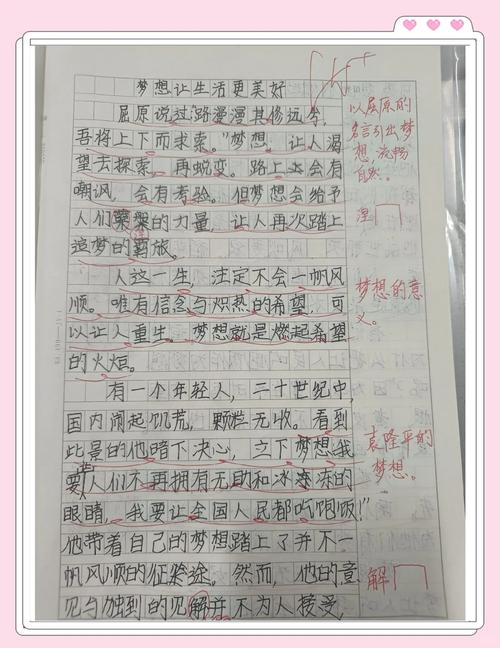 梦想让生活更美好
屈原说过"路漫漫其修远兮,
吾将上下而求索。"梦想。让人渴
望去探索,再蜕变。路上会有
嘲讽,会有考验。但梦想会给予
人们的力量,让人再次踏上
追梦的霸旅。
人这一生,注定不会一帆风
顺。唯有信念与炽热的希望,可
以让人重生。梦想就是燃起希望
的火炬。
有一个年轻人,二十世纪中,
国内闹起饥荒,颗粒无收。看到
此景的他暗下决心,立下梦想"我
要让人们不再拥有无助和冰冷冻的
眼睛,我要让全国人民都吃饱饭!"
他带着自己的梦想踏上了并不一
帆风顺的征途。然而,他的意
见与独到的见解并不为人接受
以屈原的
名言引出梦
想,流畅
自然。
梦想的意
义。
袁隆平的
梦想。
解